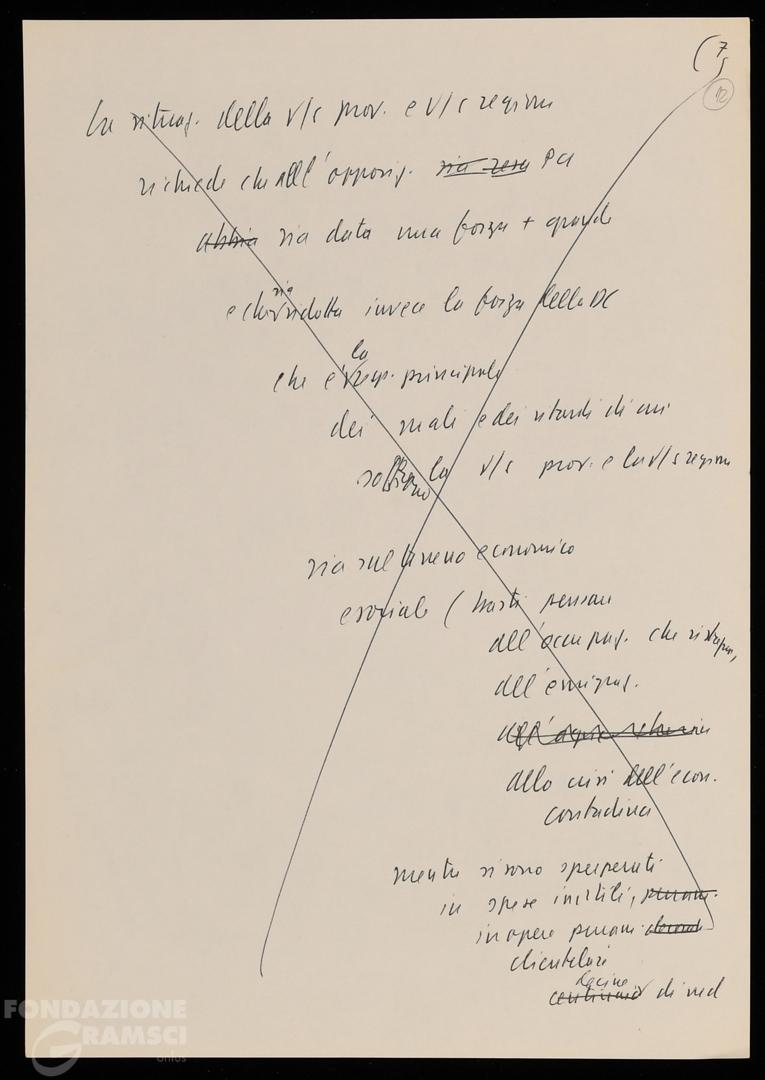 (7)
12
La situaz. della v/s prov. e v/s regione
richiede che all'opposiz. sia resa PCI
abbia sia data una forza + grande
e che sia ridotta invece la forza della DC
che è la resp. principale
dei mali e dei ritardi di cui
soffrono la v/s prov. e la v/s regione
sia sul terreno economico
e sociale (basti pensare
all'occupaz. che si restringe,
all'emigraz.
alla crisi dell'econ.
contadina
mentre si sono sperperati
in spese inutili,
in opere puram.
clientelari
centinaia decine di md
FONDAZIONE
GRAMSCI
onlus